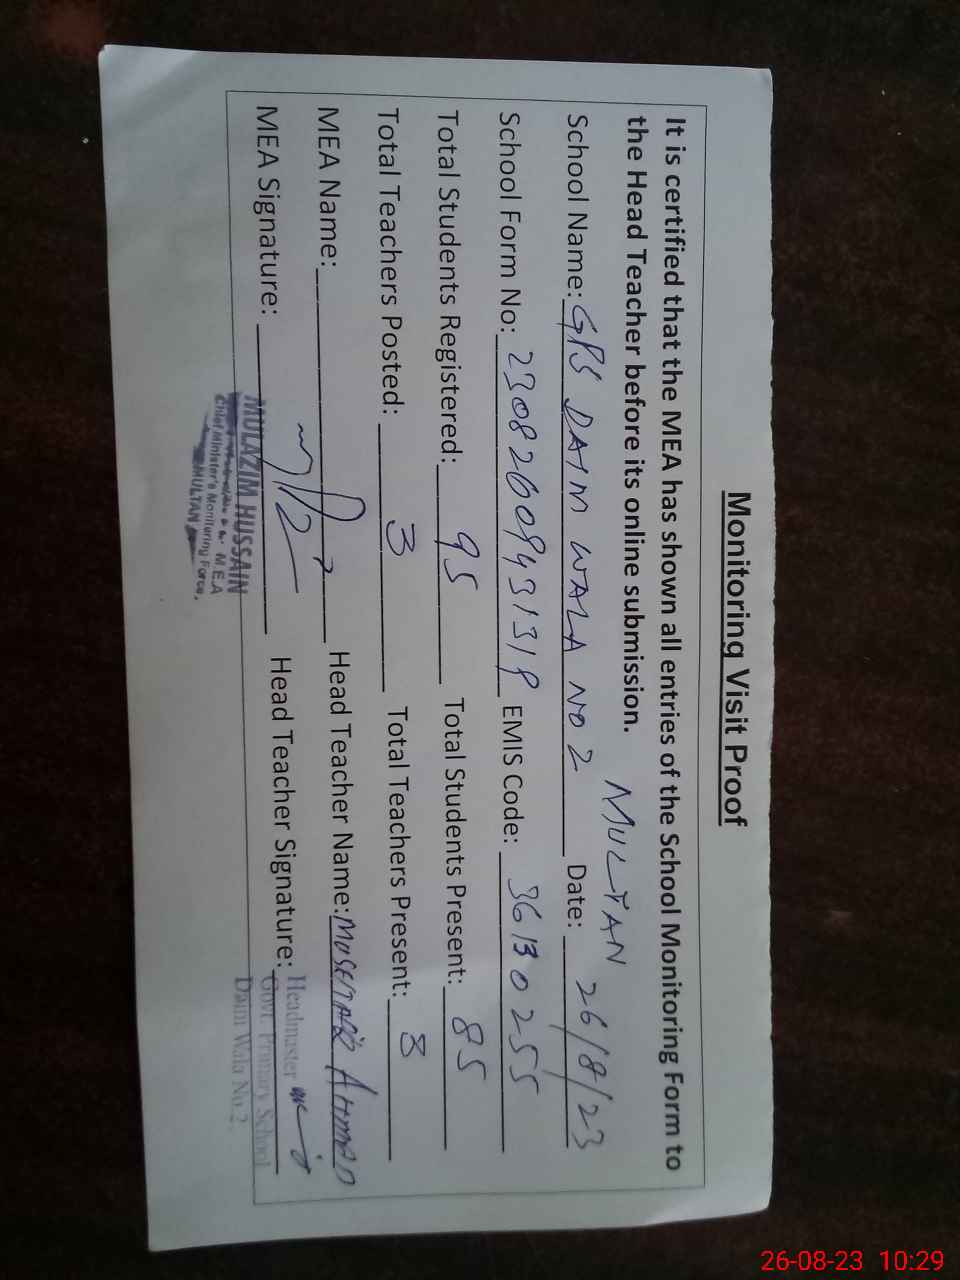 Monitoring Visit Proof
It is certified that the MEA has shown all entries of the School Monitoring Form to
the Head Teacher before its online submission.
MULTAN
School Name: GPS DAIM WALA NO 2 Date: 26/8/23
School Form No: EMIS Code: 36130255
Total Students Registered: 95 Total Students Present: 85
Total Teachers Posted: 3 Total Teachers Present: 3
MEA Name: Head Teacher Name: Ahmad
MEA Signature: Head Teacher Signature:
MULAZIM HUSSAIN
M.E.A
Chief Minister's Monitoring Force,
MULTAN
Headmaster
Govt. Primary School
Daim Wala No.2
26-08-23 10:29